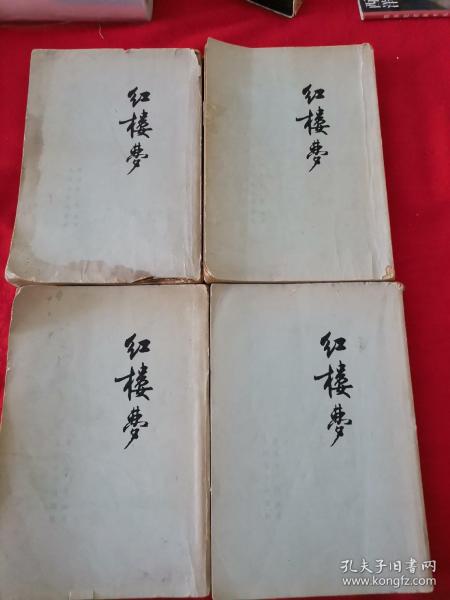 红楼梦
红楼梦
红楼梦
红楼梦
孔夫子旧书网
www.kongfz.com